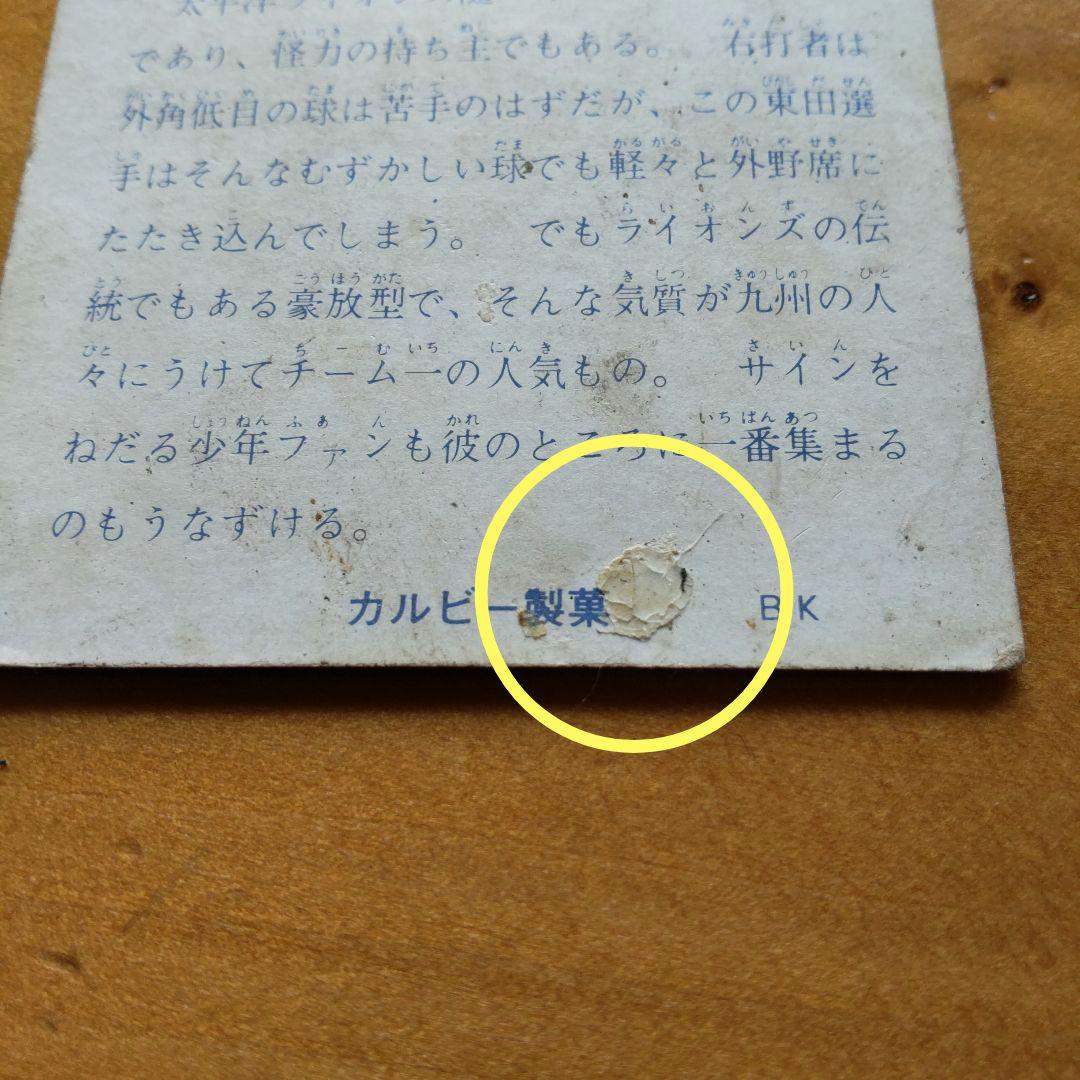 太平洋ライオンズの
であり、怪力の持ち主でもある。　右打者は
外角低目の球は苦手のはずだが、この東田選
手はそんなむずかしい球でも軽々と外野席に
たたき込んでしまう。　でもライオンズの伝
統でもある豪放型で、そんな気質が九州の人
々にうけてチーム一の人気もの。　サインを
ねだる少年ファンも彼のところに一番集まる
のもうなずける。
カルビー製菓　BK